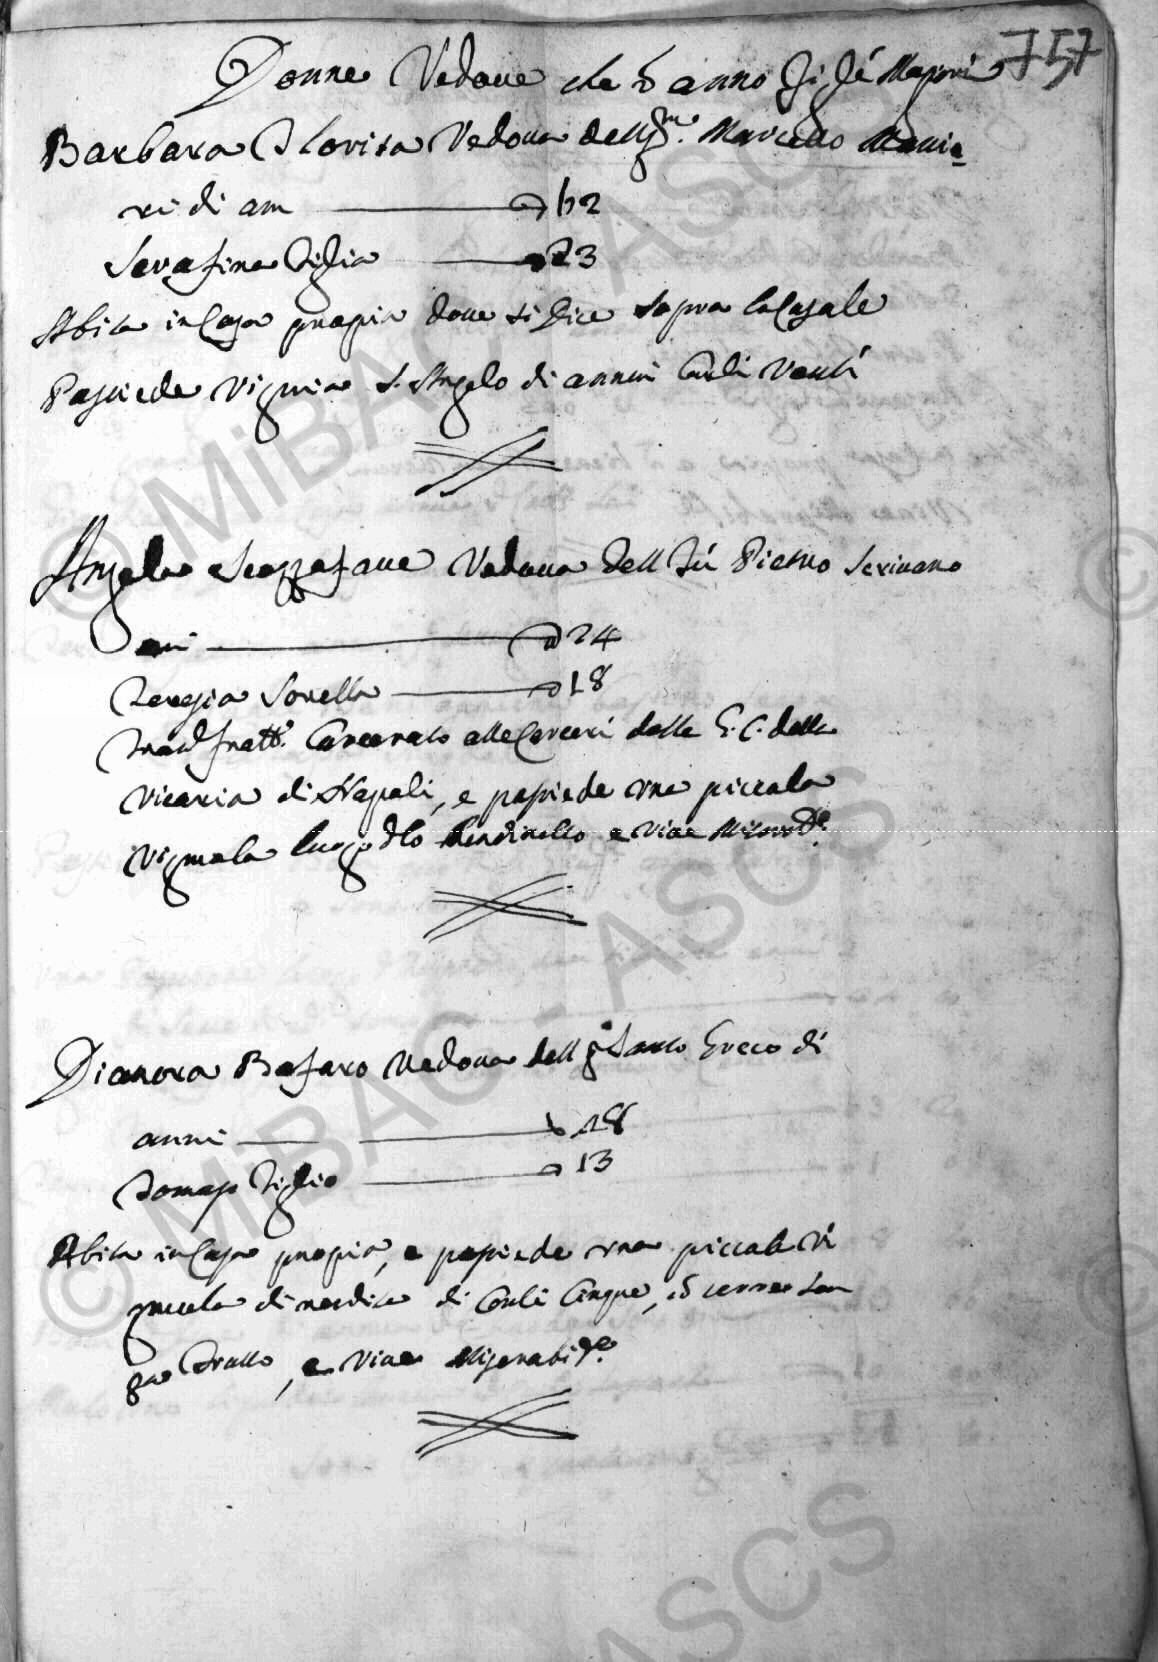 757
Donne Vedove che anno figlé Magiori
Barbara Florita Vedova dell qm. Marcello
ri di ann 62
Serafina figlia 23
Abita in Casa propia dove si dice sopra la Casale
Possiede Vignia S. Angelo di annui Carli Venti
Angela Scazzafave Vedova dell fú Pietro Scrivano
anni 24
Teresia Sorella 18
fratto. Carcerato alle Carceri della G. C. della
Vicaria di Napoli, e possiede una piccola
Vignala luogo dto e Vive
Dianora Bafaro Vedova dell qm Santo Greco di
anni 48
Tomaso figlio 13
Abita in Casa propia, e possiede una piccola Vi
gnicela di rendita di Carli Cinque,
Trutto, e Vive Miserabilte.
© MiBAC - ASCS
© MiBAC - ASCS
ASCS
©
©